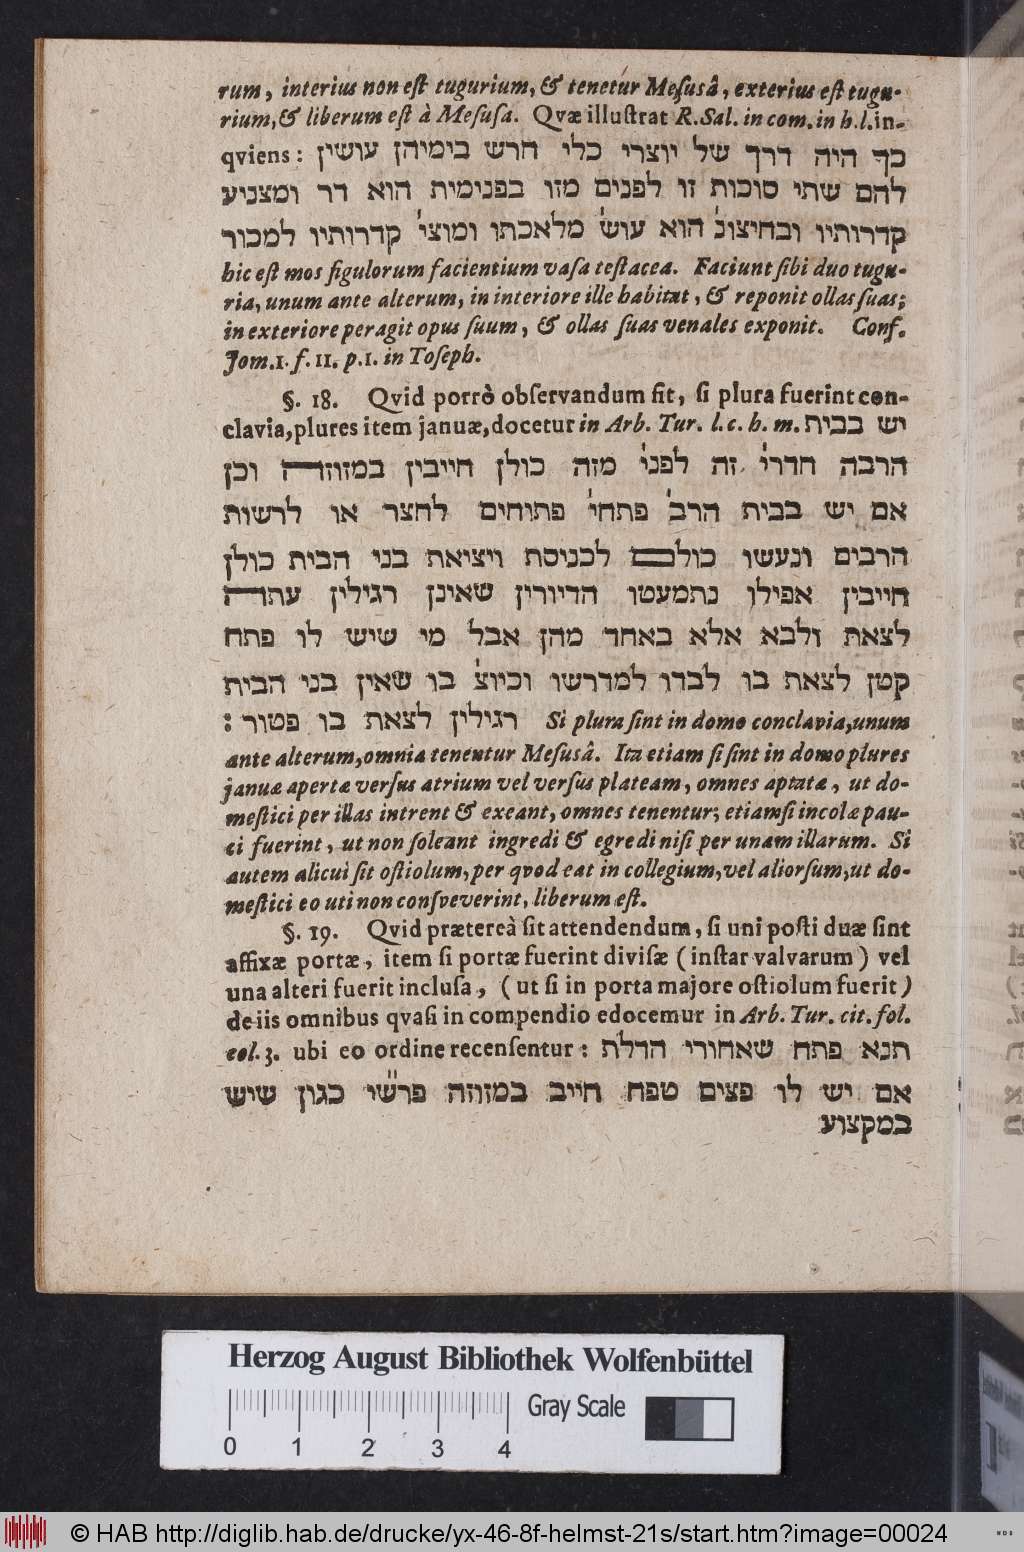 rum, interius non eſt tugurium, & tenetur Meſusâ, exterius eſt tugu-
rium, & liberum eſt à Meſuſa. Qvæ illuſtrat R. Sal. in com. in h. l. in-
qviens: כך היה דרך של יוצרי כלי חרש בימיהן עושין
להם שתי סוכות זו לפנים מזו בפנימית הוא דר ומצניע
קדרותיו ובחיצונ' הוא עוש' מלאכתו ומוצי' קדרותיו למכור
hic eſt mos figulorum facientium vaſa teſtacea. Faciunt ſibi duo tugu-
ria, unum ante alterum, in interiore ille habitat, & reponit ollas ſuas;
in exteriore peragit opus ſuum, & ollas ſuas venales exponit. Conf.
Jom. 1. f. 11. p. 1. in Toſeph.
§. 18. Qvid porrò obſervandum ſit, ſi plura fuerint con-
clavia, plures item januæ, docetur in Arb. Tur. l. c. h. m. יש בבית
הרבה חדרי' זה לפני' מזה כולן חייבין במזוזה וכן
אם יש בבית הרב' פתחי' פתוחים לחצר או לרשות
הרבים ונעשו כולם לכניסת ויציאת בני הבית כולן
חייבין אפילו נתמעטו הדיורין שאינן רגילין עתה
לצאת ולבא אלא באחד מהן אבל מי שיש לו פתח
קטן לצאת בו לבדו למדרשו וכיוצ' בו שאין בני הבית
רגילין לצאת בו פטור: Si plura ſint in domo conclavia, unum
ante alterum, omnia tenentur Meſusâ. Ita etiam ſi ſint in domo plures
januæ apertæ verſus atrium vel verſus plateam, omnes aptatæ, ut do-
meſtici per illas intrent & exeant, omnes tenentur; etiamſi incolæ pau-
ci fuerint, ut non ſoleant ingredi & egredi niſi per unam illarum. Si
autem alicui ſit oſtiolum, per qvod eat in collegium, vel aliorſum, ut do-
meſtici eo uti non conſveverint, liberum eſt.
§. 19. Qvid prætereà ſit attendendum, ſi uni poſti duæ ſint
affixæ portæ, item ſi portæ fuerint diviſæ (inſtar valvarum) vel
una alteri fuerit incluſa, (ut ſi in porta majore oſtiolum fuerit)
de iis omnibus qvaſi in compendio edocemur in Arb. Tur. cit. fol.
col. 3. ubi eo ordine recenſentur: תנא פתח שאחורי הדלת
אם יש לו פצים טפח חייב במזוזה פרש"י כגון שיש
במקצוע
Herzog August Bibliothek Wolfenbüttel
Gray Scale
0 1 2 3 4
© HAB http://diglib.hab.de/drucke/yx-46-8f-helmst-21s/start.htm?image=00024